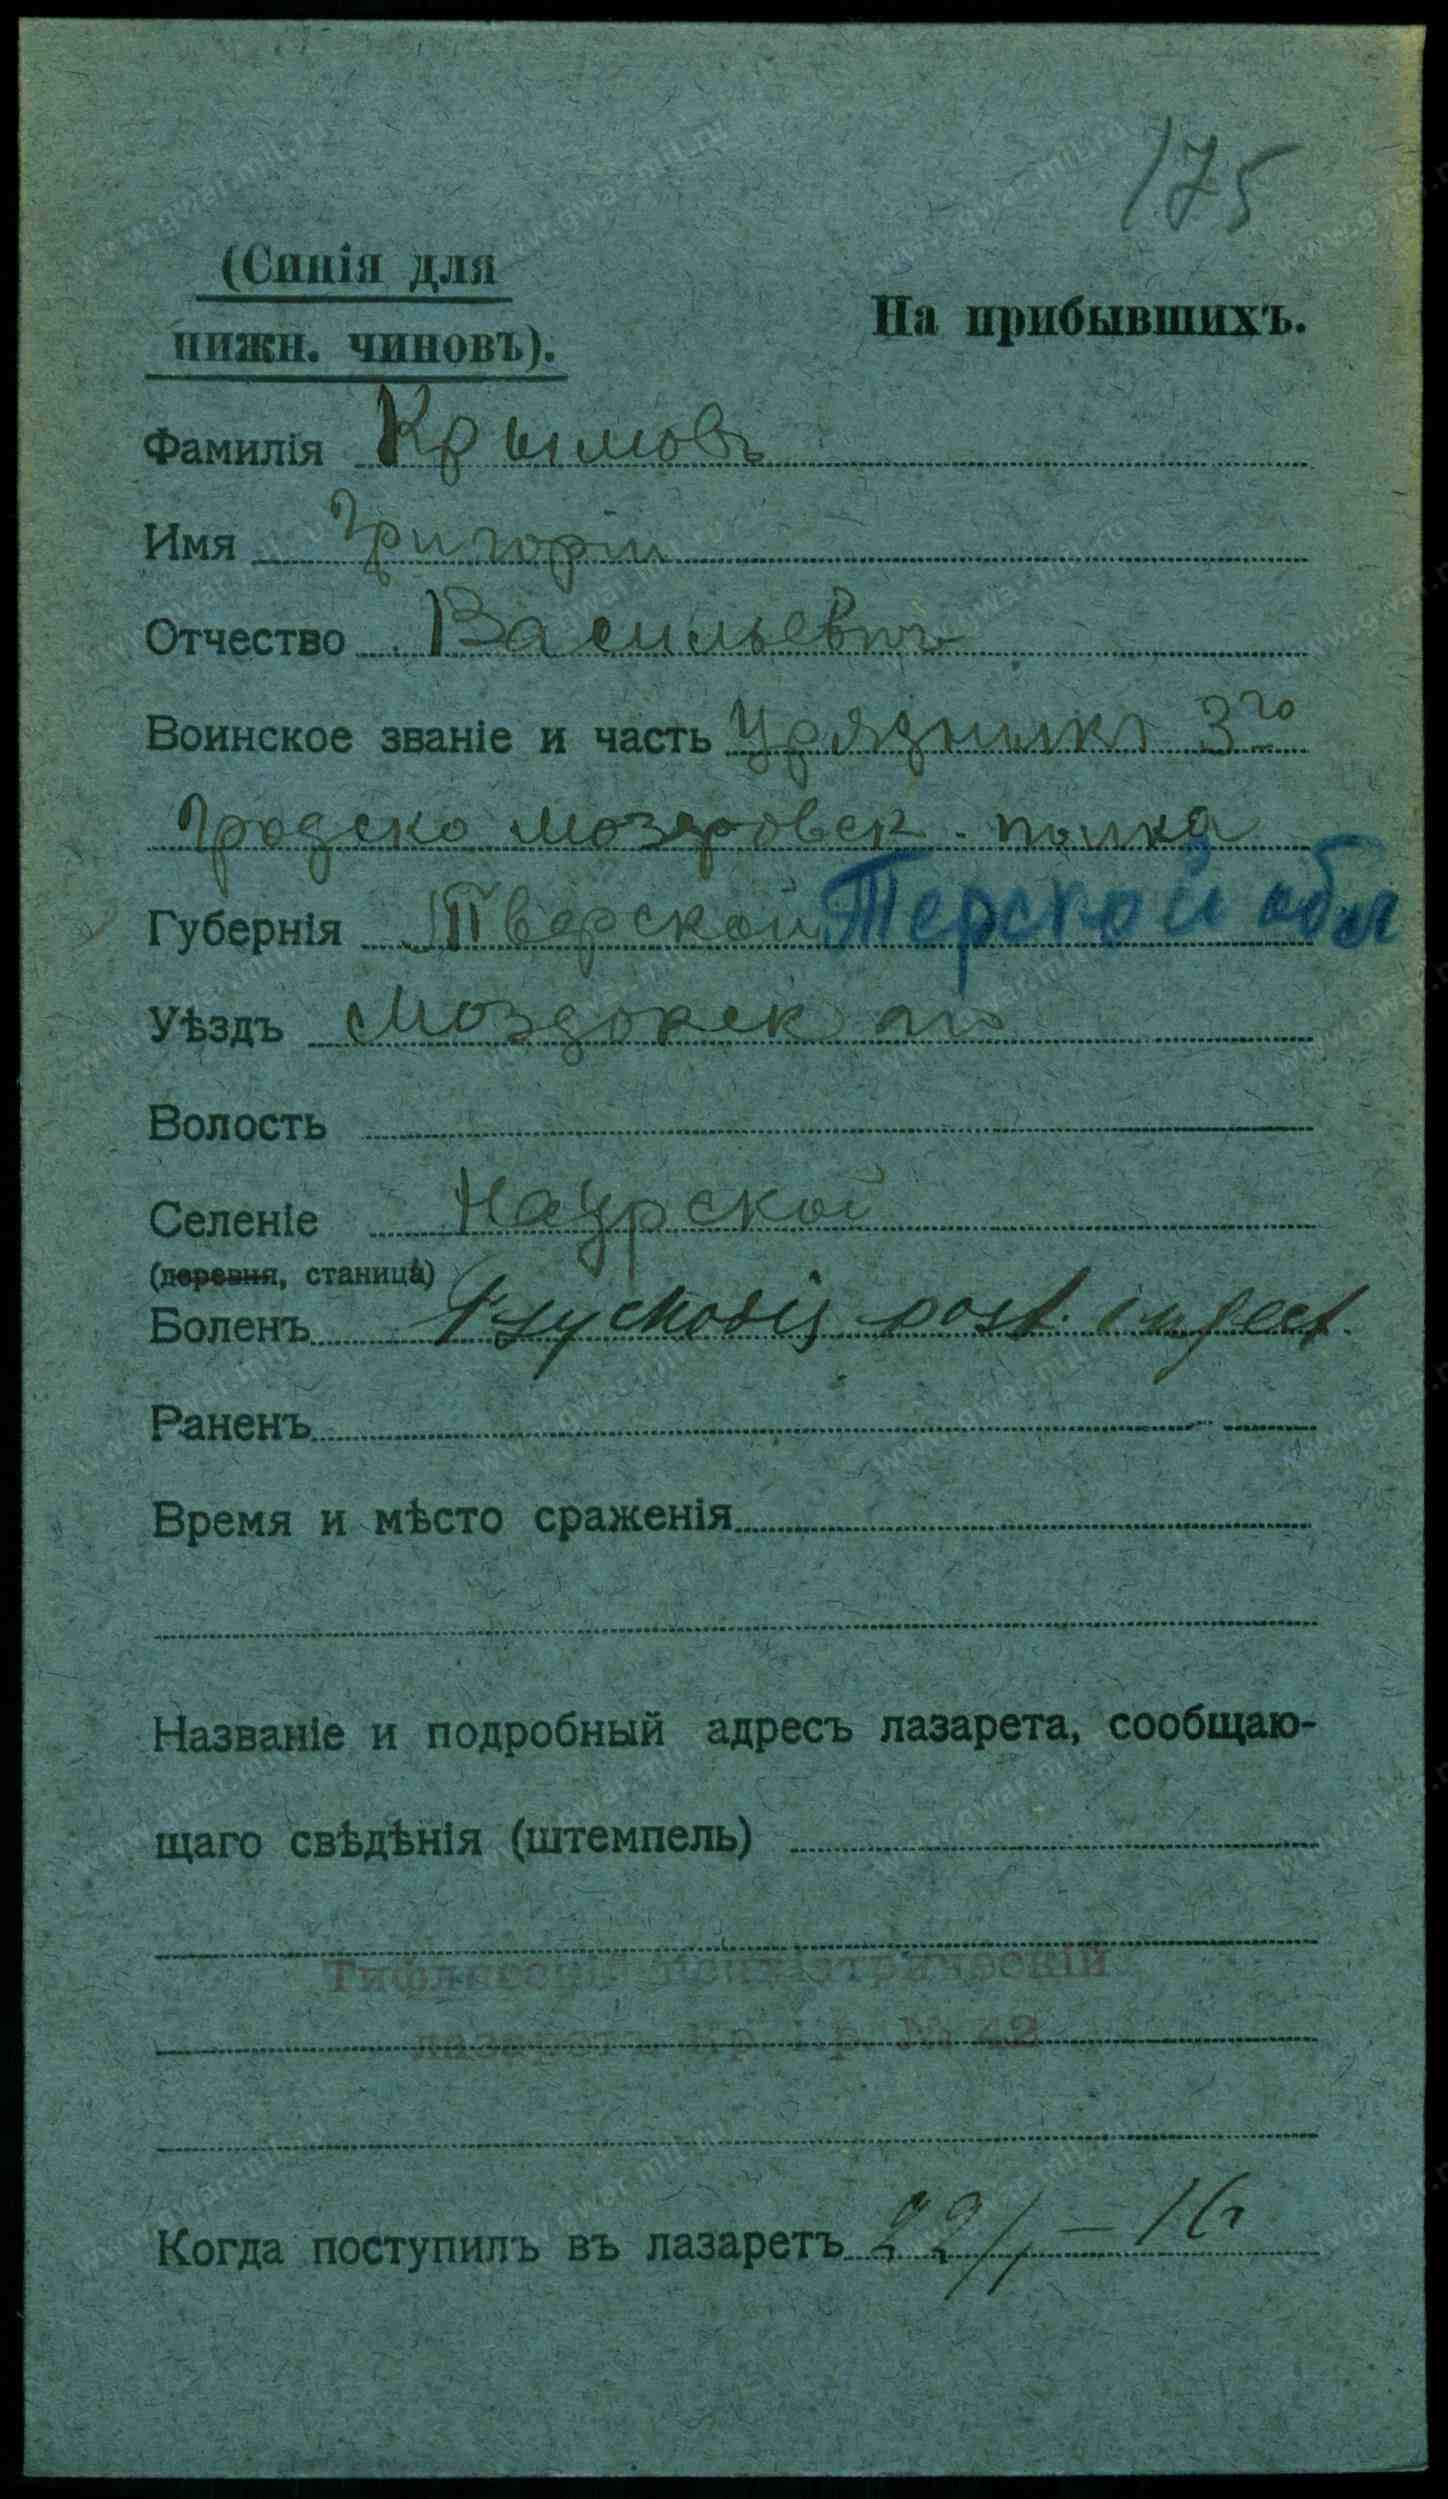 175
(Синія для
нижн. чиновъ).
На прибывшихъ.
Фамилія Крымовъ
Имя Григорій
Отчество Васильевич
Воинское званіе и часть Урядникъ 3го
полка
Губернія Тверской Терской обл
Уѣздъ Моздокск
Волость
Селеніе Наурской
(деревня, станица)
Боленъ Psychosis post. infect.
Раненъ
Время и мѣсто сраженія
Названіе и подробный адресъ лазарета, сообщаю-
щаго свѣдѣнія (штемпель)
Тифлисскій психіатрическій
лазаретъ № 42
Когда поступилъ въ лазаретъ 22/I – 16